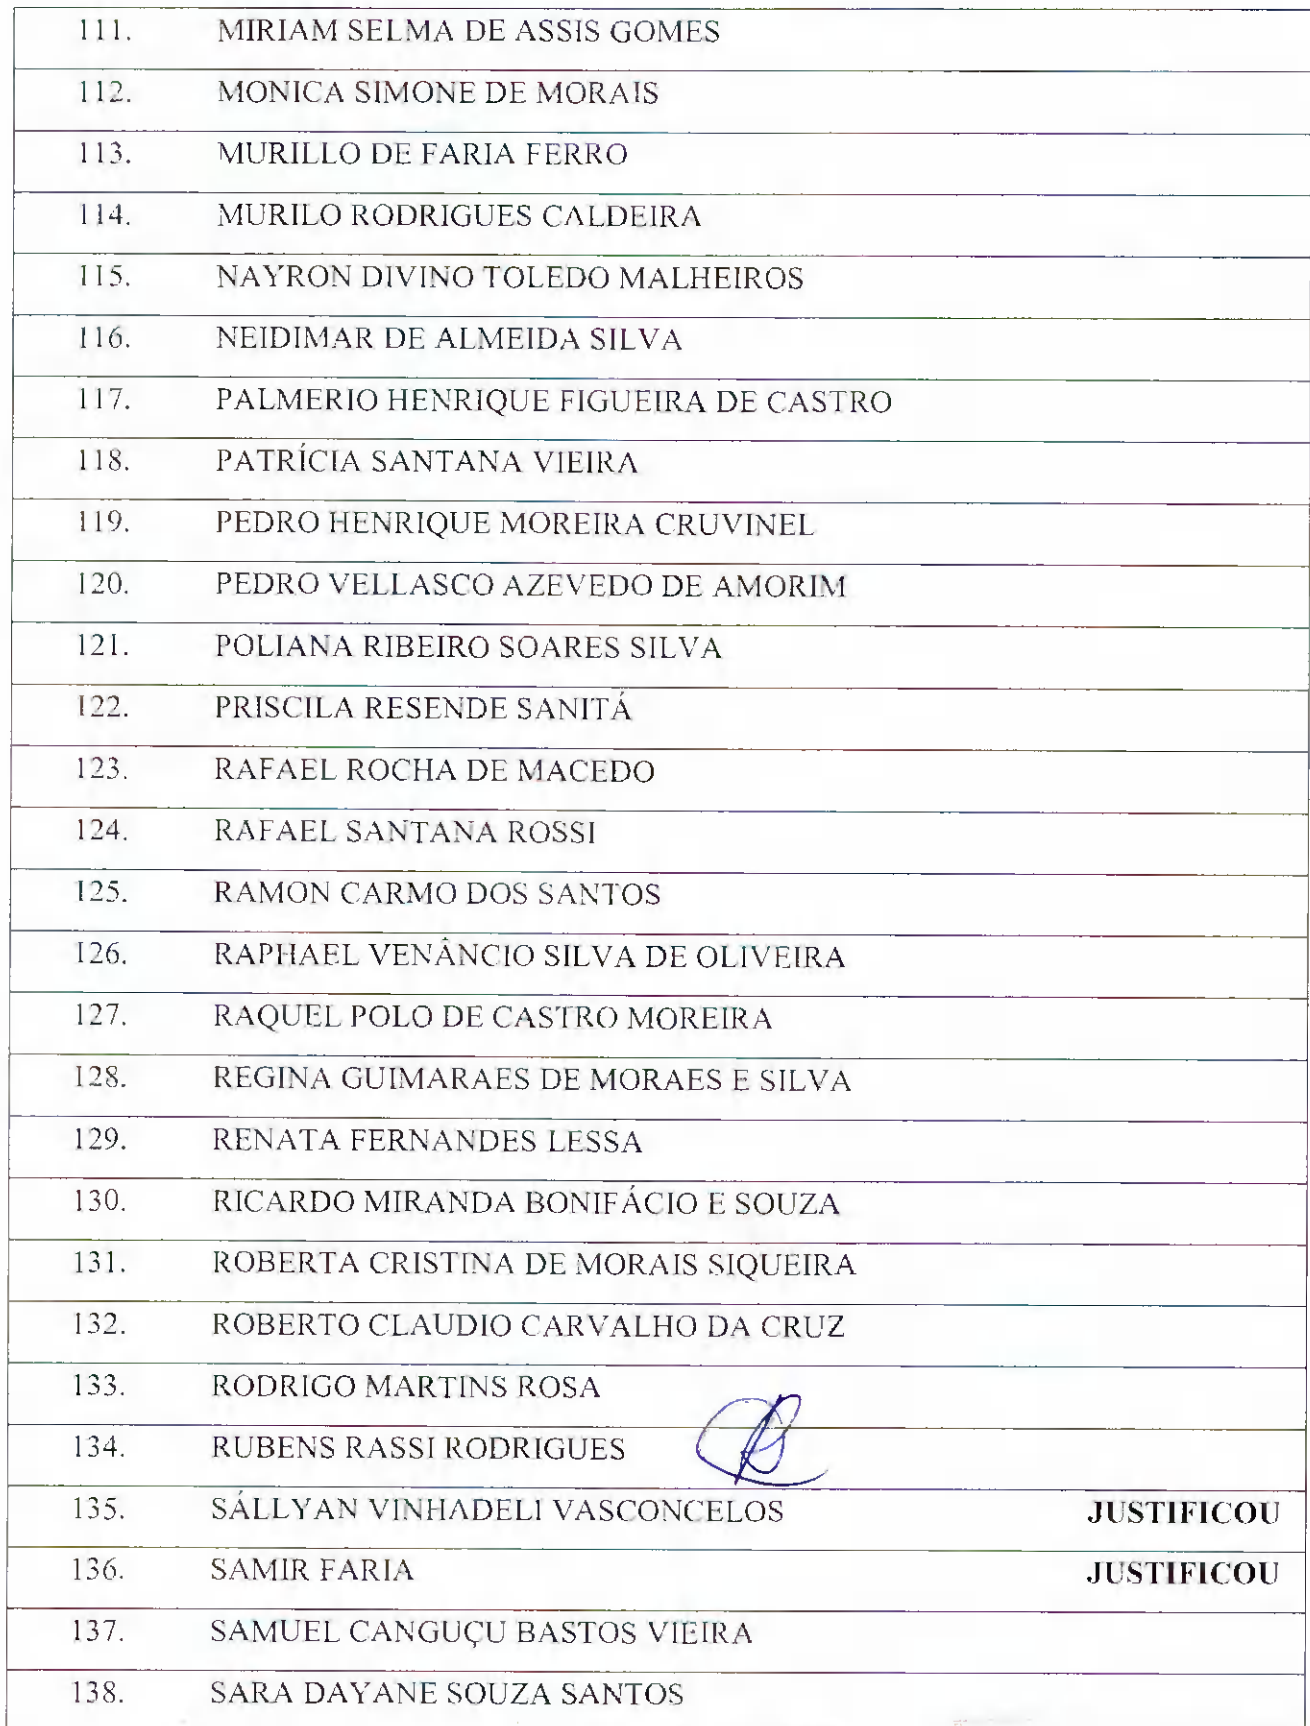 111. MIRIAM SELMA DE ASSIS GOMES
112. MONICA SIMONE DE MORAIS
113. MURILLO DE FARIA FERRO
114. MURILO RODRIGUES CALDEIRA
115. NAYRON DIVINO TOLEDO MALHEIROS
116. NEIDIMAR DE ALMEIDA SILVA
117. PALMERIO HENRIQUE FIGUEIRA DE CASTRO
118. PATRÍCIA SANTANA VIEIRA
119. PEDRO HENRIQUE MOREIRA CRUVINEL
120. PEDRO VELLASCO AZEVEDO DE AMORIM
121. POLIANA RIBEIRO SOARES SILVA
122. PRISCILA RESENDE SANITÁ
123. RAFAEL ROCHA DE MACEDO
124. RAFAEL SANTANA ROSSI
125. RAMON CARMO DOS SANTOS
126. RAPHAEL VENÂNCIO SILVA DE OLIVEIRA
127. RAQUEL POLO DE CASTRO MOREIRA
128. REGINA GUIMARAES DE MORAES E SILVA
129. RENATA FERNANDES LESSA
130. RICARDO MIRANDA BONIFÁCIO E SOUZA
131. ROBERTA CRISTINA DE MORAIS SIQUEIRA
132. ROBERTO CLAUDIO CARVALHO DA CRUZ
133. RODRIGO MARTINS ROSA
134. RUBENS RASSI RODRIGUES
135. SÁLLYAN VINHADELI VASCONCELOS JUSTIFICOU
136. SAMIR FARIA JUSTIFICOU
137. SAMUEL CANGUÇU BASTOS VIEIRA
138. SARA DAYANE SOUZA SANTOS